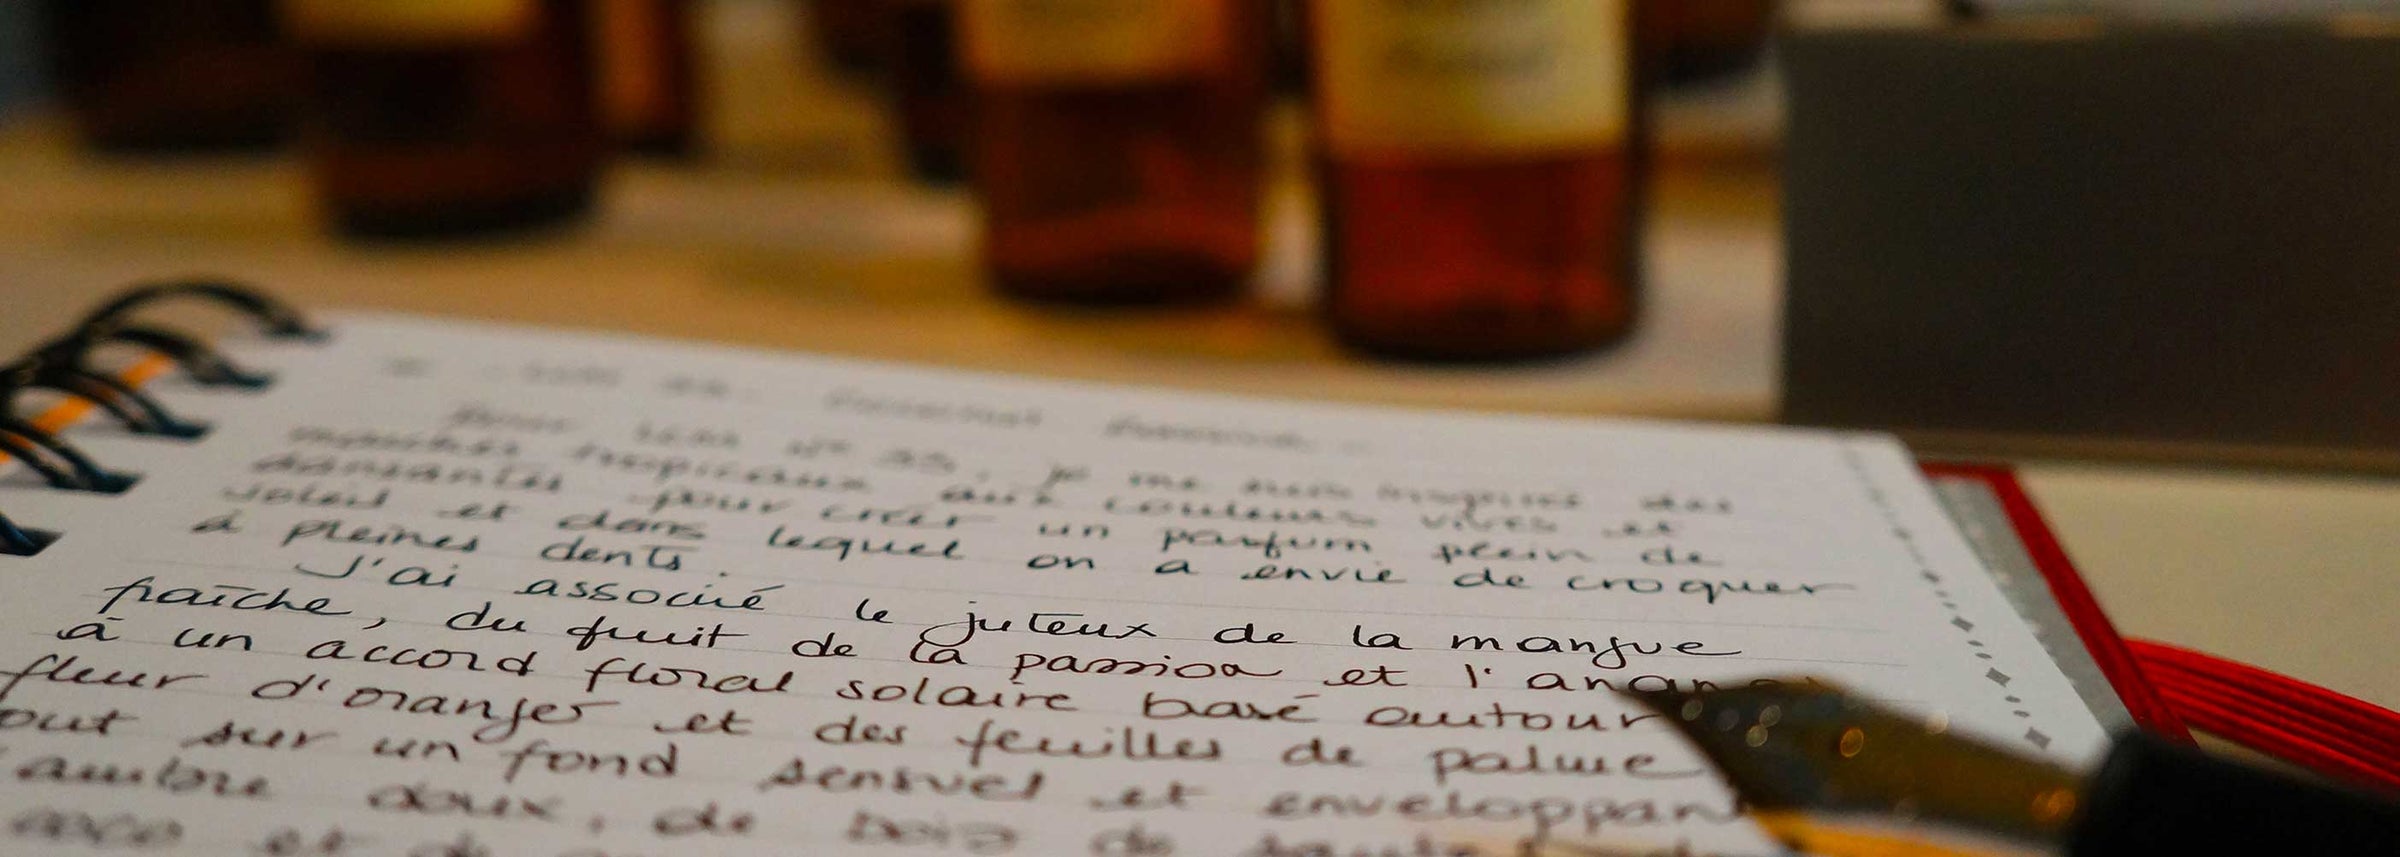 Pour       N° 33, je me suis imaginé des
marchés tropicaux aux couleurs vives et
dansantes pour créer un parfum plein de
soleil et dans lequel on a envie de croquer
à pleines dents.
J'ai associé le juteux de la mangue
fraîche, du fruit de la passion et l'anana
à un accord floral solaire basé autour
fleur d'oranger et des feuilles de palme
out sur un fond sensuel et enveloppant
ambre doux, de bois de
coco et de